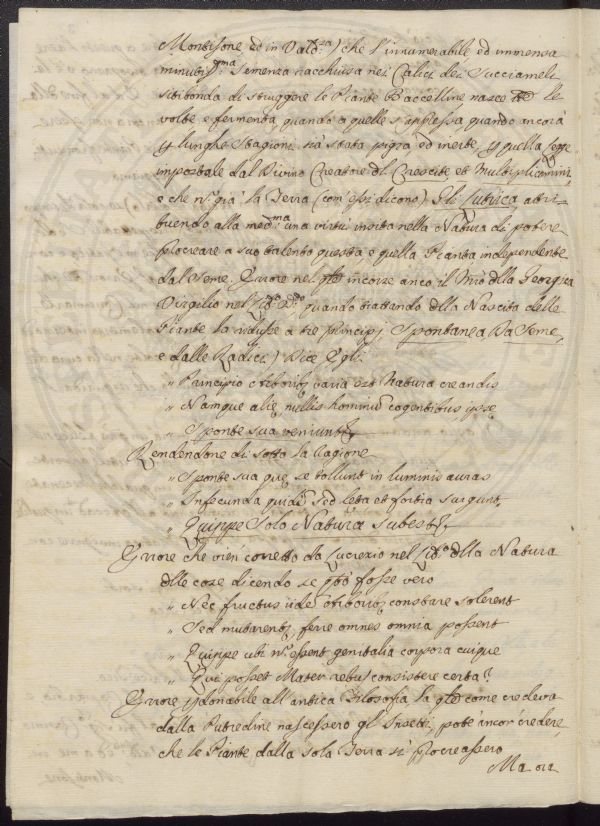 Montisone ed in Vald.za) che l'innumerabile ed immensa
minutis.ma semenza racchiusa nei Calici dei Succiameli
sitibonda di struggere le Piante Baccelline nasce le
volte e fermenta, quando a quelle s'appressa, quando ancorà
p lunghe Stagioni sia stata pigra ed inerte, p quella legge
impostale dal Divino Creatore del Crescite et Multiplicamini,
e che n. già la Terra (com'essi dicono) Gli Subvica, attri-
buendo alla med.ma una virtù insita nella Natura di potere
procreare a suo talento questa e quella Pianta independente
dal Seme. Errore nel qle incorse anco il Mro dlla Georgica
Virgilio nel quando trattando dlla Nascita delle
Piante la ridusse a tre principj, Spontanea, Da Seme,
e dalle Radici) Dice Egli
„ Principio Arboribq varia est Natura creandis
„ Namque alie nullis hominū cogentibus, ipse
„ Sponte sua veniunt
Rendendone di sotto la Ragione
„ Sponte sua que se tollunt in luminis auras
„ Infecunda quidē sed leta et fortia surgunt,
„ Quippe Solo Natura Subest
Errore che vien corretto da Lucrezio nel Lib.o dlla Natura
dlle cose dicendo se qto fosse vero
„ Nec fructus iidē Arboribq constare solerent
„ Sed mutarentq, ferre omnes omnia possent
„ Quippe ubi n. essent genitalia corpora cuique
„ Quì posset Mater rebus consistere certa?
Errore pdonabile all'antica Filosofia la qle come credeva
dalla Putredine nascessero gl'Insetti, pote ancor credere,
che le Piante dalla sola Terra si procreassero
Ma ora